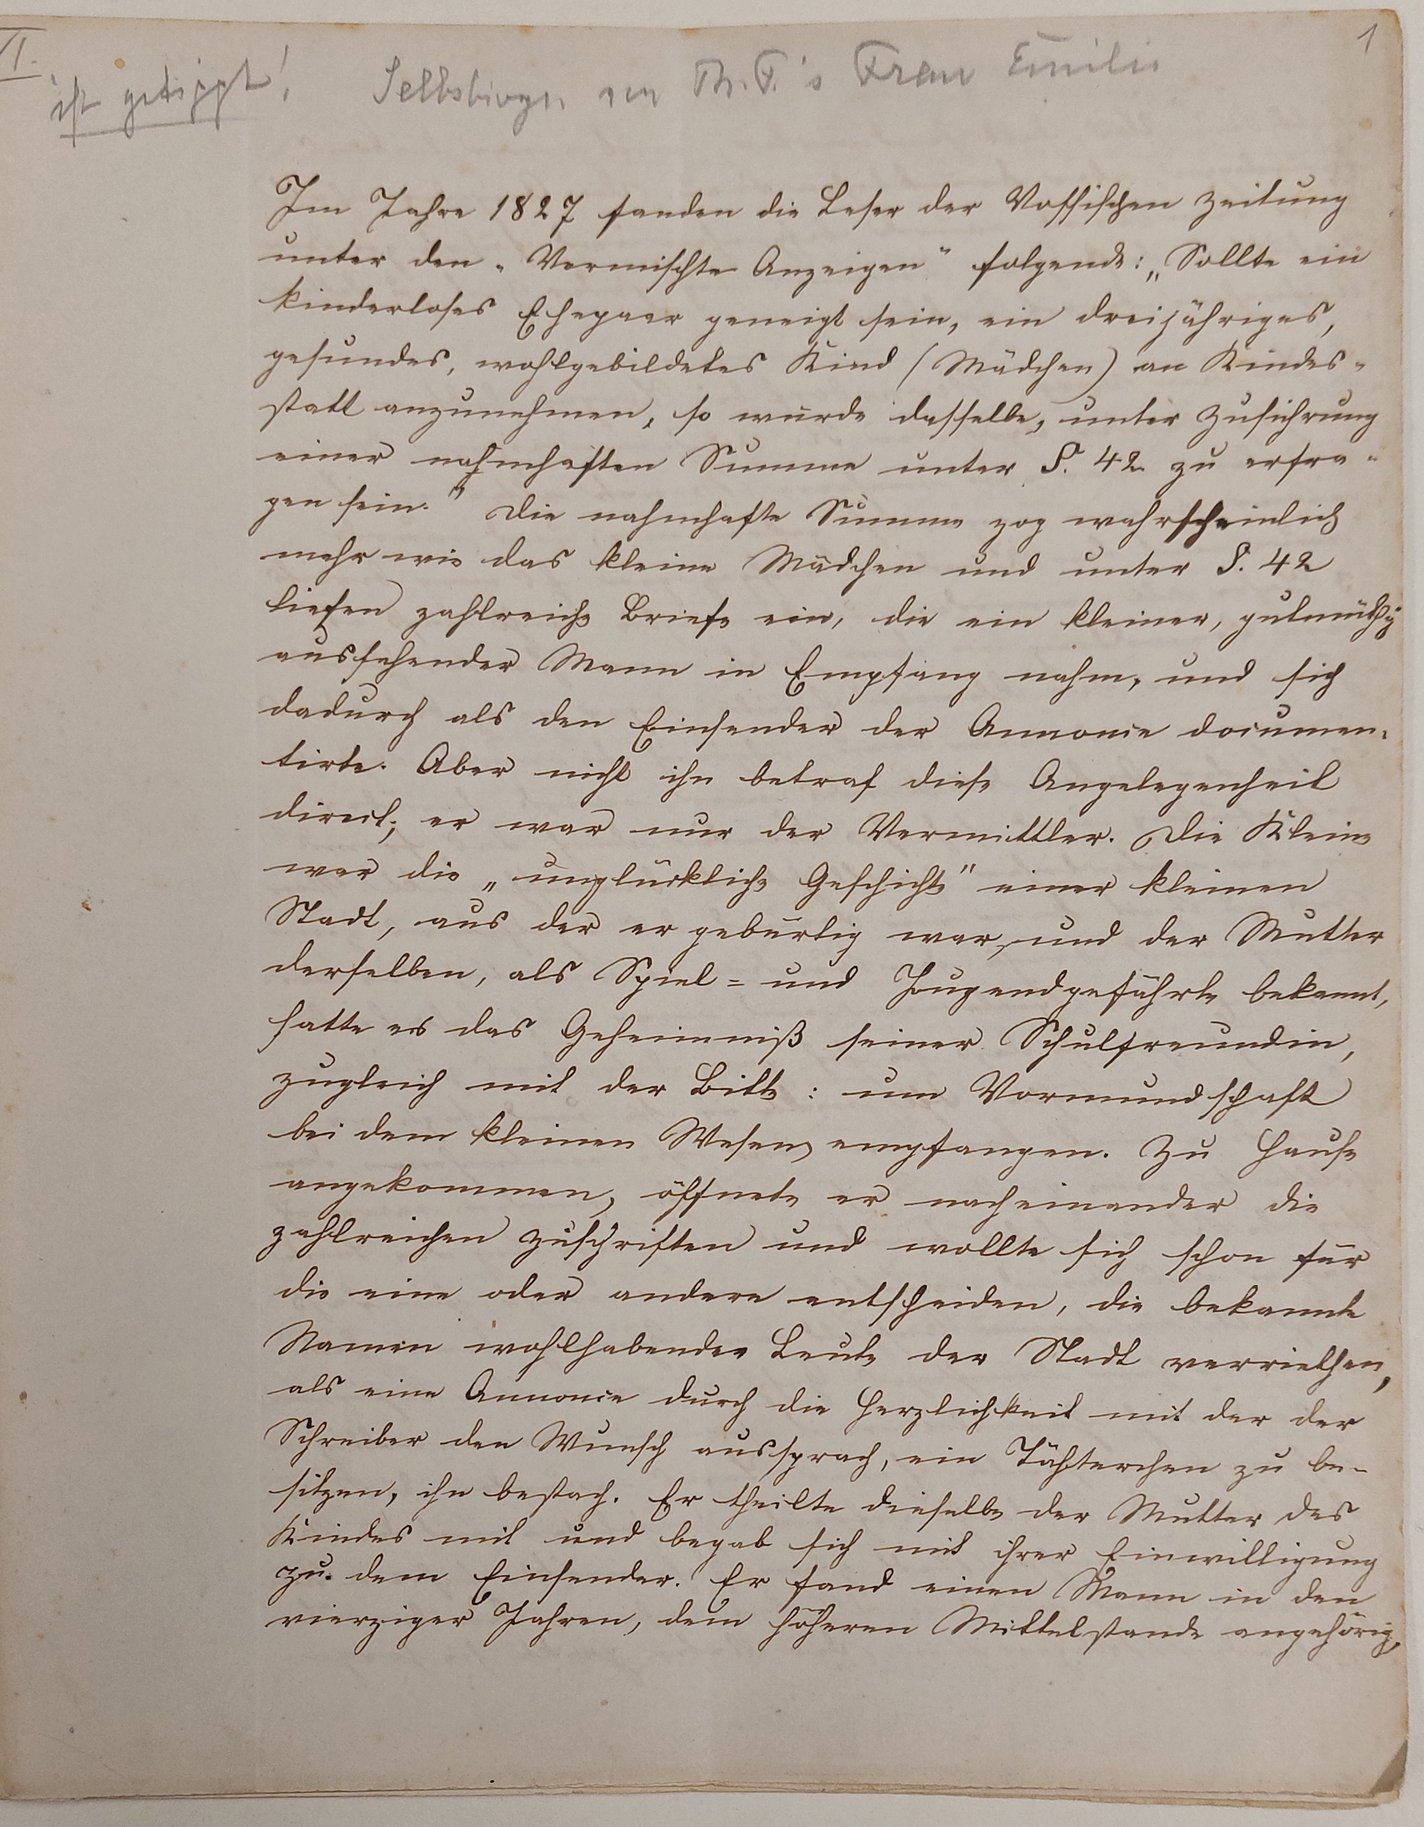 VI.
1
ist getippt!
Selbstbiogr. von Th. F.'s Frau Emilie
Im Jahre 1827 fanden die Leser der Vossischen Zeitung
unter den „Vermischte Anzeigen" folgende: „Sollte ein
kinderloses Ehepaar geneigt sein, ein dreijähriges,
gesundes, wohlgebildetes Kind (Mädchen) an Kindes-
statt anzunehmen, so wurde dasselbe, unter Zusichrung
einer nahmhaften Summe unter S. 42 zu erfra-
gen sein." Die nahmhafte Summe zog wahrscheinlich
mehr wie das kleine Mädchen und unter S. 42
liefen zahlreiche Briefe ein, die ein kleiner, gutmüthig
aussehender Mann in Empfang nahm, und sich
dadurch als den Einsender der Annonce documen-
tirte. Aber nicht ihn betraf diese Angelegenheit
direct; er war nur der Vermittler. Die Kleine
war die „unglückliche Geschichte" einer kleinen
Stadt, aus der er gebürtig war, und der Mutter
derselben, als Spiel- und Jugendgefährte bekannt,
hatte er das Geheimniß seiner Schulfreundin,
zugleich mit der Bitte: um Vormundschaft
bei dem kleinen Wesen empfangen. Zu Hause
angekommen, öffnete er nacheinander die
zahlreichen Zuschriften und wollte sich schon für
die eine oder andere entscheiden, die bekannte
Namen wohlhabender Leute der Stadt verriethen,
als eine Annonce durch die Herzlichkeit mit der der
Schreiber den Wunsch aussprach, ein Töchterchen zu be-
sitzen, ihn bestach. Er theilte dieselbe der Mutter des
Kindes mit und begab sich mit ihrer Einwilligung
zu dem Einsender. Er fand einen Mann in den
vierziger Jahren, dem höheren Mittelstande angehörig,